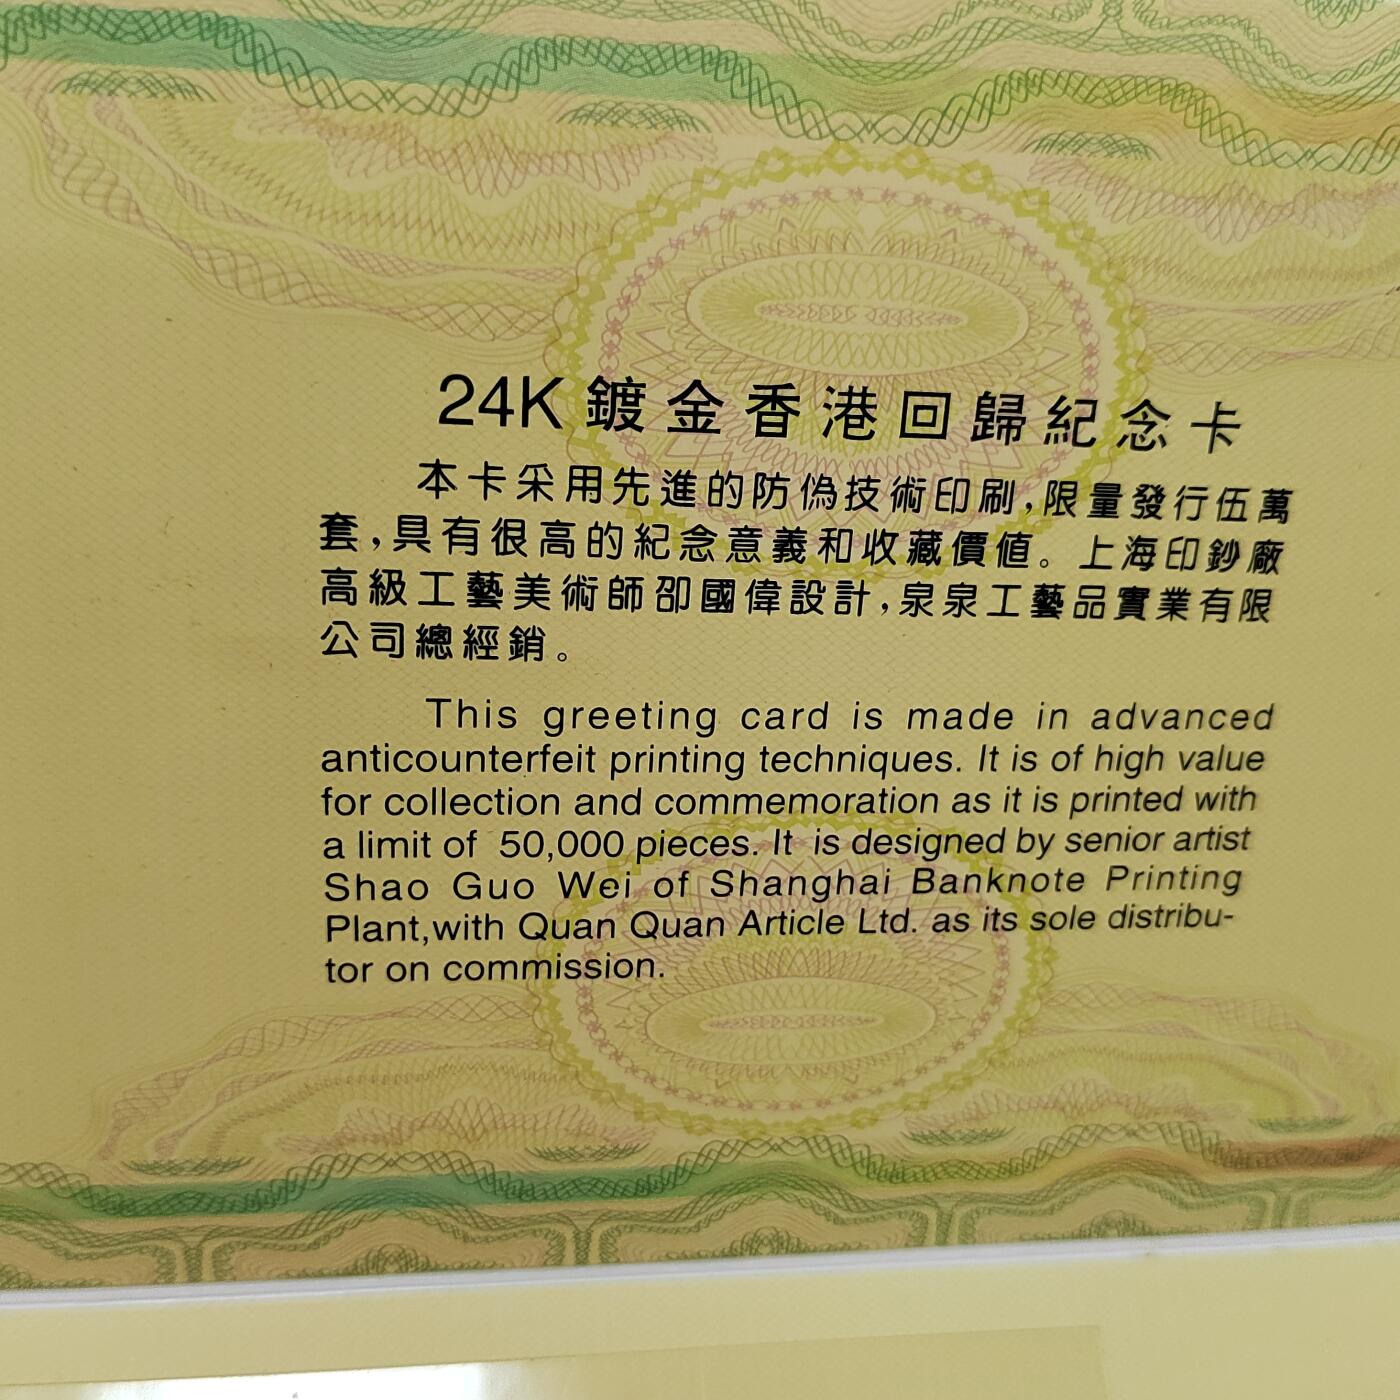 24K鍍金香港回歸紀念卡
本卡采用先進的防偽技術印刷,限量發行伍萬
套,具有很高的紀念意義和收藏價值。上海印鈔廠
高級工藝美術師邵國偉設計,泉泉工藝品實業有限
公司總經銷。
This greeting card is made in advanced
anticounterfeit printing techniques. It is of high value
for collection and commemoration as it is printed with
a limit of 50,000 pieces. It is designed by senior artist
Shao Guo Wei of Shanghai Banknote Printing
Plant,with Quan Quan Article Ltd. as its sole distribu-
tor on commission.